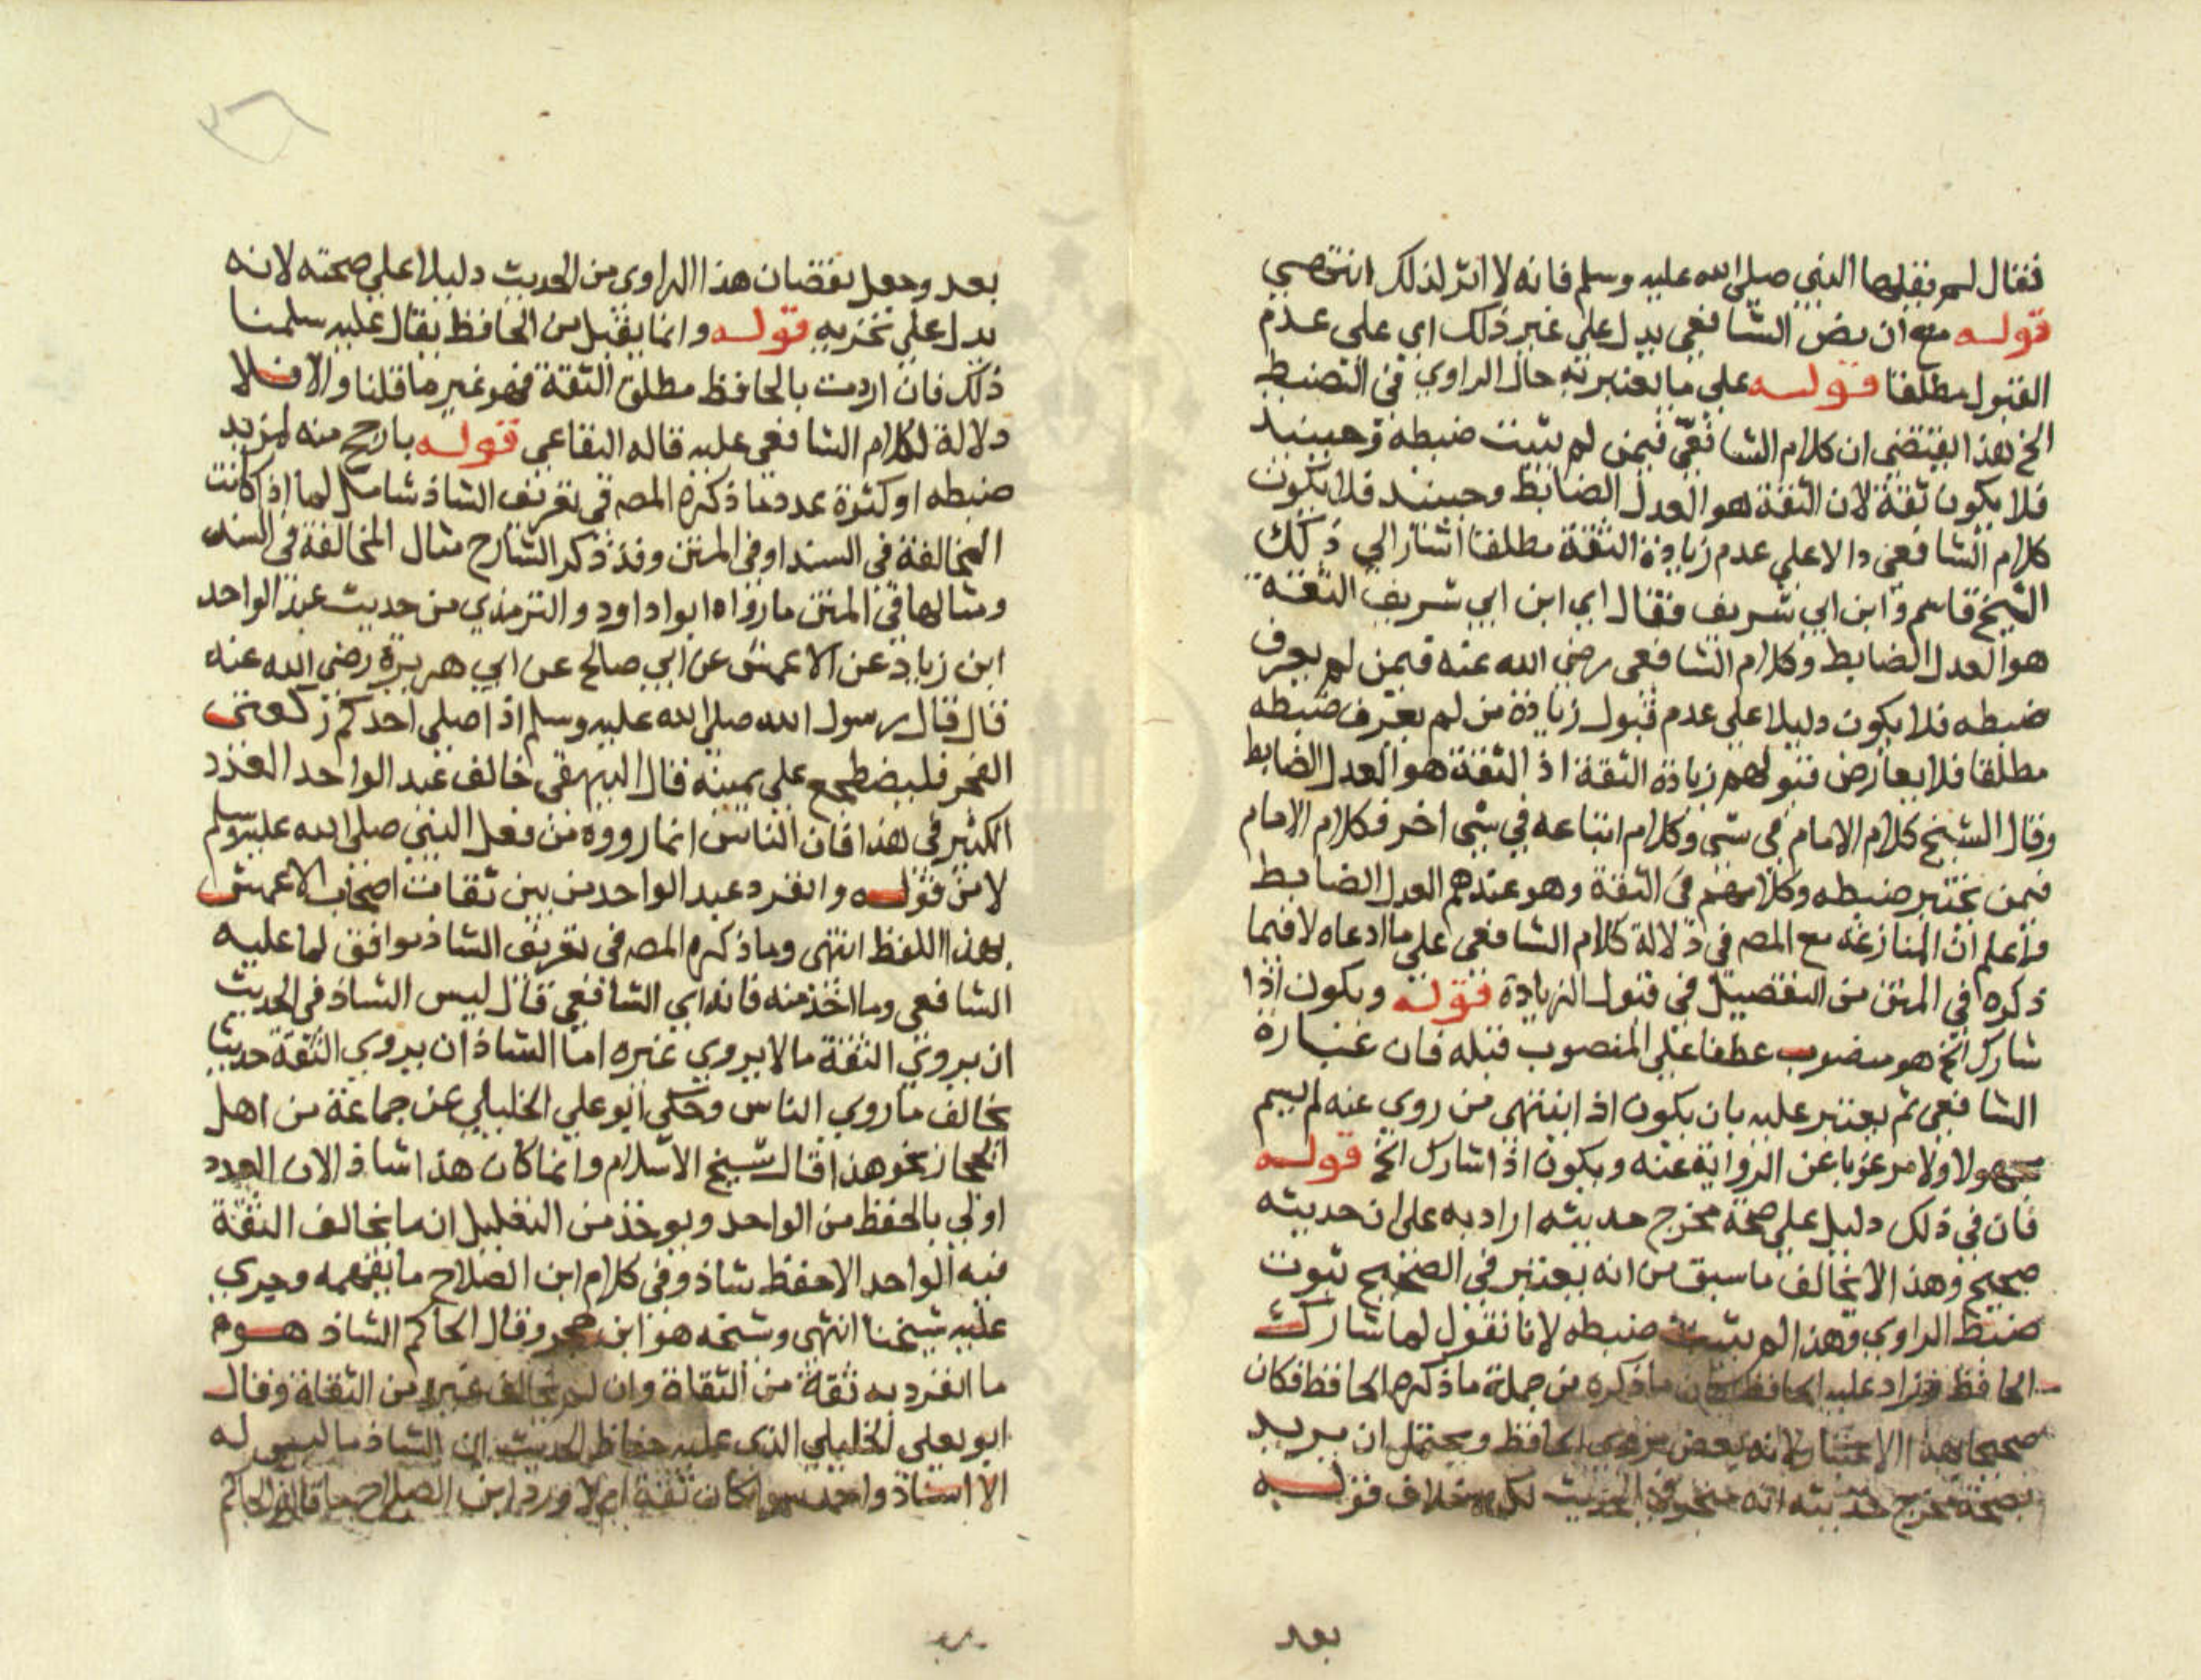 فقال لم نقلها النبي صلى الله عليه وسلم فانه لا اثر لذلك انتهي
قوله مع ان نص الشافعي يدل علي غير ذلك اي علي عدم
القبول مطلقا قوله علي ما يعتبر به حال الراوي في الضبط
الخ هذا يقتضي ان كلام الشافعي فيمن لم يثبت ضبطه وحينيد
فلا يكون ثقة لان الثقة هو العدل الضابط وحينيد فلا يكون
كلام الشافعي دالا علي عدم زيادة الثقة مطلقا اشار الي ذلك
الشيخ قاسم وابن ابي شريف فقال اي ابن ابي شريف الثقة
هو العدل الضابط وكلام الشافعي رضي الله عنه فيمن لم يعرف
ضبطه فلا يكون دليلا علي عدم قبول زيادة من لم يعرف ضبطه
مطلقا فلا يعارض قبولهم زيادة الثقة اذ الثقة هو العدل الضابط
وقال الشيخ كلام الامام في شي وكلام اتباعه في شي اخر فكلام الامام
فيمن يختبر ضبطه وكلامهم في الثقة وهو عندهم العدل الضابط
واعلم ان المنازعة مع المص في دلالة كلام الشافعي علي ما ادعاه لا فيما
ذكره في المتن من التفصيل في قبول الزيادة قوله ويكون اذا
شارك الخ هو منصوب عطفا علي المنصوب قبله فان عبارة
الشافعي ثم يعتبر عليه بان يكون اذ اينتهي من روي عنه لم يسم
مجهولا ولا مرغوبا عن الرواية عنه ويكون اذا شارك الخ قوله
فان في ذلك دليل علي صحة مخرج حديثه اراد به علي ان حديثه
صحيح وهذا لا يخالف ما سبق من انه يعتبر في الصحيح ثبوت
ضبط الراوي وهذا لم يثبت ضبطه لانا نقول لما شارك
الحافظ وزاد عليه الحافظ كان ما ذكره من جملة ما ذكره الحافظ فكان
صحيحا بهذا الاعتبار لانه بعض مروي الحافظ ويحتمل ان يريد
بصحة مخرج حديثه انه الحديث لكن خلاف قوله
بعد
بعد وجعل نقصان هذا الراوي من الحديث دليلا علي صحته لانه
يدل علي تحريه قوله وانما يقبل من الحافظ يقال عليه سلمنا
ذلك فان اردت بالحافظ مطلق الثقة فهو غير ما قلنا والا فلا
دلالة لكلام الشافعي عليه قاله البقاعي قوله بارجح منه لمزيد
ضبطه او كثرة عدد ما ذكره المص في تعريف الشاذ شامل لما اذا كانت
المخالفة في السند او في المتن وقد ذكر الشارح مثال المخالفة في السند
ومثالها في المتن ما رواه ابوا داود والترمذي من حديث عبد الواحد
ابن زياد عن الاعمش عن ابي صالح عن ابي هريرة رضي الله عنه
قال قال رسول الله صلي الله عليه وسلم اذا صلي احدكم ركعتي
الفجر فليضطجع علي يمينه قال البيهقي خالف عبد الواحد العدد
الكثير في هذا فان الناس انما رووه من فعل النبي صلي الله عليه وسلم
لا من قوله وانفرد عبد الواحد من بين ثقات اصحاب الاعمش
بهذا اللفظ انتهي وما ذكره المص في تعريف الشاذ موافق لما عليه
الشافعي وما اخذ منه فانه اي الشافعي قال ليس الشاذ في الحديث
ان يروي الثقة ما لا يروي غيره انما الشاذ ان يروي الثقة حديثا
يخالف ما روي الناس وحكي ابو علي الخليلي عن جماعة من اهل
الحجاز نحو هذا قال شيخ الاسلام وانما كان هذا شاذ الان العدد
اولي بالحفظ من الواحد ويوخذ من التعليل ان ما يخالف الثقة
فيه الواحد الاحفظ شاذ وفي كلام ابن الصلاح ما يفهمه وجري
عليه شيخنا انتهي وشيخه هو ابن حجر وقال الحاكم الشاذ هو م
ما انفرد به ثقة من الثقاة وان لم يخالف غيره من الثقاة وقال
ابو يعلي الخليلي الذي عليه حفاظ الحديث ان الشاذ ما ليس له
الا اسناد واحد سوا كان ثقة ام لا ورد ابن الصلاح ما قاله الحاكم